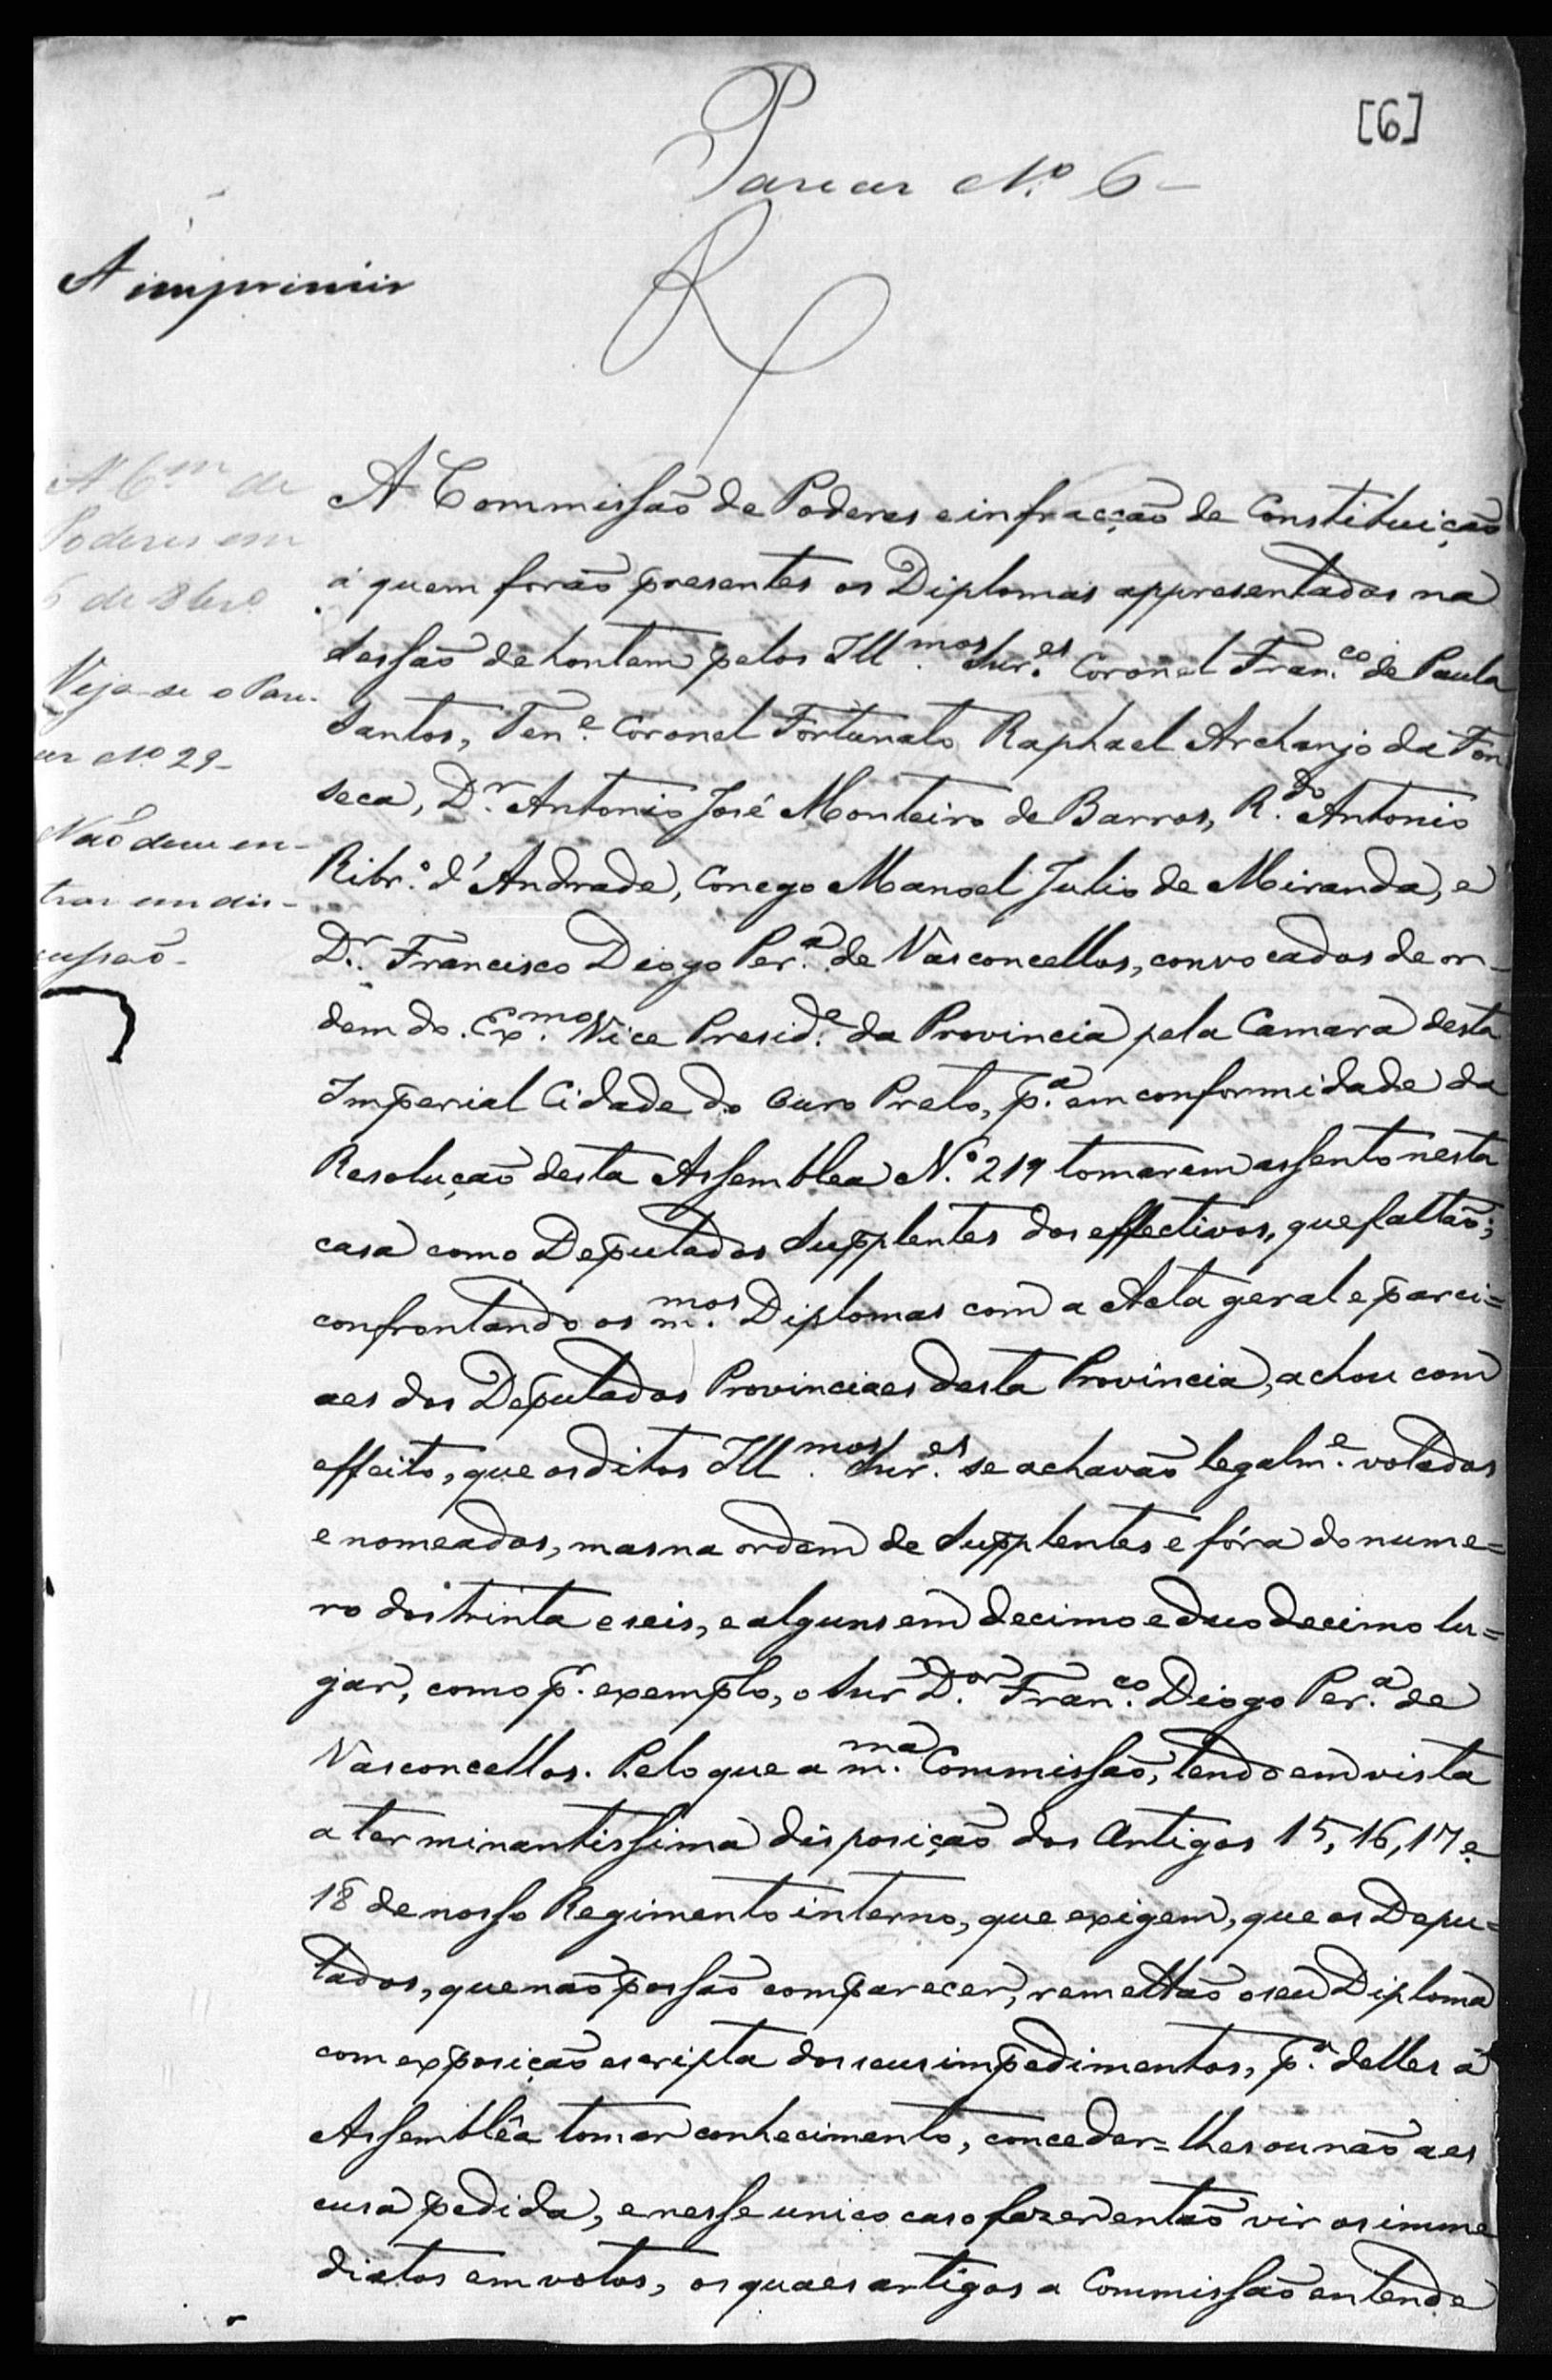 [6]
Parecer N.º 6-
A imprimir
R
A C.m de
Poderes em
6 de 8bro
Veja-se o Pare-
cer Nº 29-
Não deve en-
trar em dis-
cussaõ-
A Commissaõ de Poderes e infracçaõ de Constituiçaõ
á quem foraõ presentes os Diplomas appresentados na
Sessaõ de hontem pelos Ill.mos Snr.es Coronel Fran.co de Paula
Santos, Ten.e Coronel Fortunato Raphael Archanjo da Fon
seca, D.r Antonio José Monteiro de Barros, R.do Antonio
Ribr.o d'Andrade, Conego Manoel Julio de Miranda, e
D.r Francisco Diogo Per.a de Vasconcellos, convocados de or-
dem do Ex.mo Vice Presid.e da Provincia pela Camara desta
Imperial Cidade do Ouro Preto, p.a em conformidade da
Resoluçaõ desta Assemblea N.o 219 tomarem assento nesta
casa como Deputados Supplentes dos effectivos, que faltaõ;
confrontando os m.mos Diplomas com a Acta geral e parci=
aes dos Deputados Provinciaes desta Provincia, achou com
effeito, que os ditos Ill.mos Snr.es se achavaõ legalm.e votados
e nomeados, mas na ordem de Supplentes e fóra do nume=
ro dos trinta e seis, e alguns em decimo e duodecimo lu=
gar, como p.r exemplo, o Snr D.or Fran.co Diogo Per.a de
Vasconcellos. Pelo que a m.ma Commissaõ, tendo em vista
a terminantissima disposiçaõ dos Artigos 15, 16, 17 e
18 de nosso Regimento interno, que exigem, que os Depu=
tados, que naõ possaõ comparecer, remettaõ o seu Diploma
com exposiçaõ escripta dos seus impedimentos, p.a delles á
Assemblêa tomar conhecimento, conceder=lhes ou naõ a es
cusa pedida, e nesse unico caso fazer entaõ vir os imme
diatos em votos, os quaes artigos a Commissaõ entende